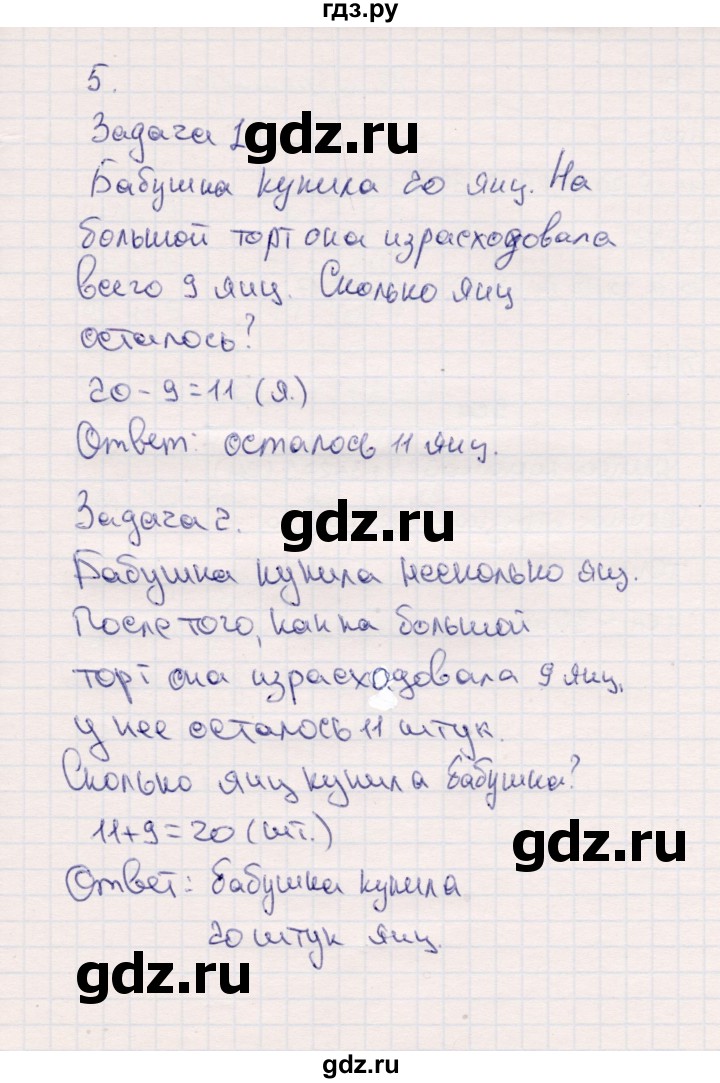 гдз.ру
5.
Задача 1
gdz.ru
Бабушка купила 20 яиц. На
большой торт она израсходовала
всего 9 яиц. Сколько яиц
осталось?
20 - 9 = 11 (я.)
Ответ: осталось 11 яиц.
Задача 2.
gdz.ru
Бабушка купила несколько яиц.
После того, как на большой
торт она израсходовала 9 яиц,
у нее осталось 11 штук.
Сколько яиц купила бабушка?
11 + 9 = 20 (шт.)
gdz.ru
Ответ: бабушка купила
20 штук яиц.
gdz.ru
gdz.ru